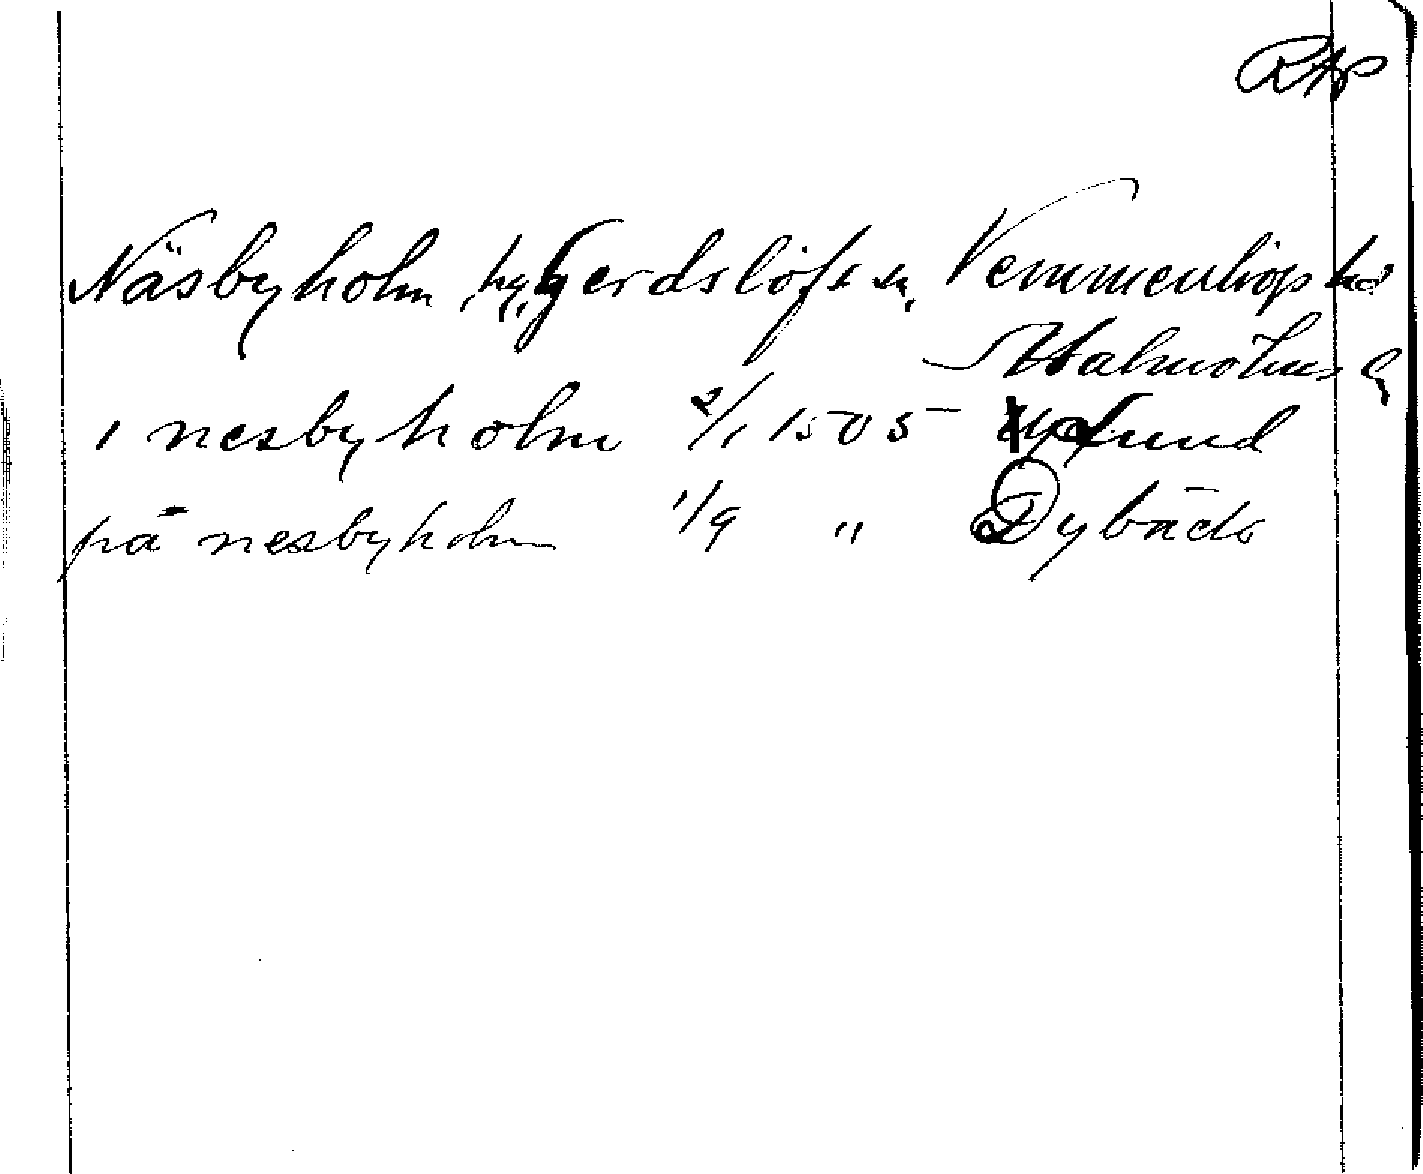 RAP
Näsbyholm, hg, Gerdslöfs sn, Vemmenhögs hd
Malmöhus l
i nesbyholm 2/1 1505 Lund
på nesbyholm 1/9 " Dybäck